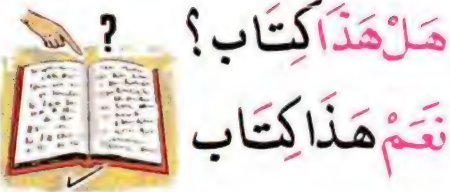 هَلْ هَذَا كِتَاب ؟
نَعَمْ هَذَا كِتَاب
?